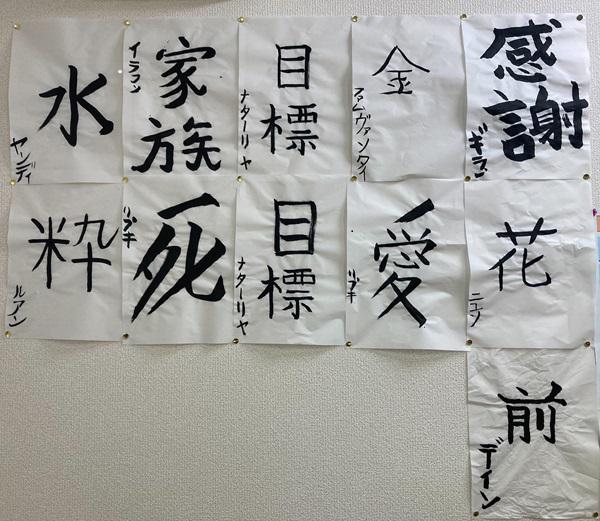 水
ヤンディ
家族
イラマン
目標
ナターリヤ
金
ファムヴァンタイ
感謝
ギラン
粋
ルアン
死
リブキ
目標
ナターリヤ
愛
リブキ
花
前
デイン